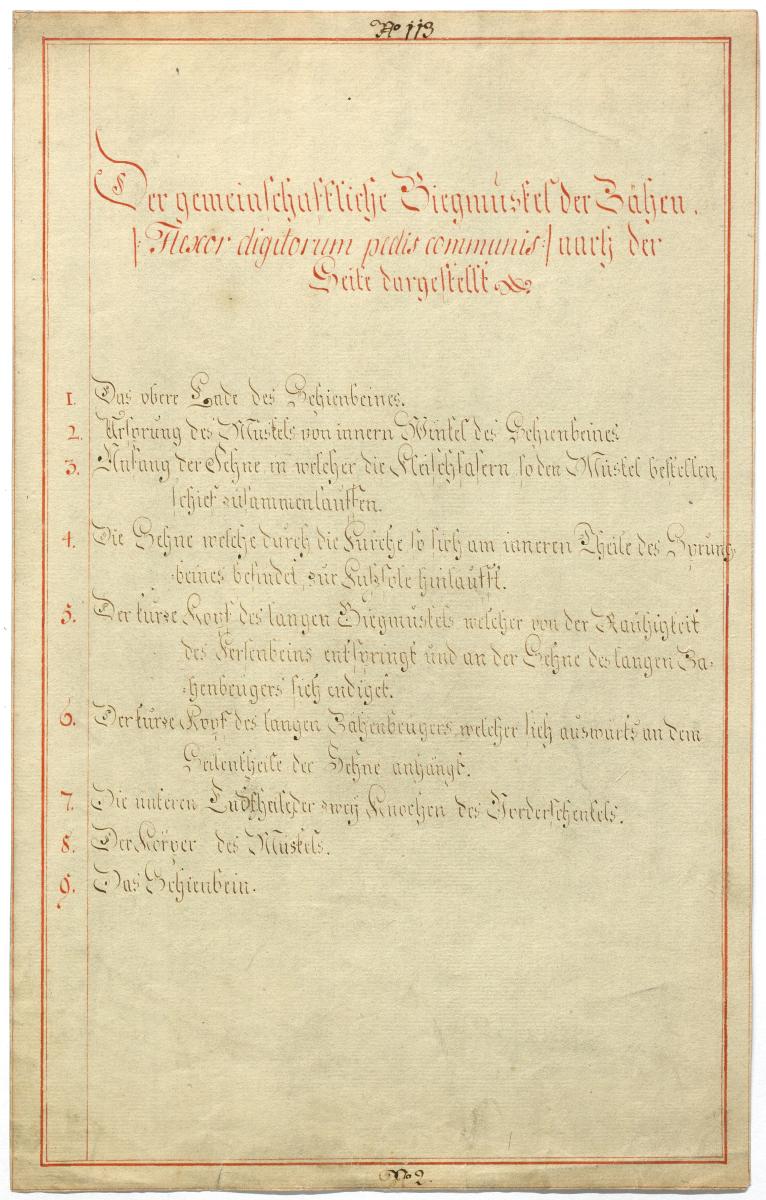 No 113
Der gemeinschaftliche Biegmuskel der Zähen.
|: Flexor digitorum pedis communis :| nach der
Seite dargestellt
1. Das obere Ende des Schienbeines.
2. Ursprung des Muskels von innern Winkel des Schienbeines
3. Anfang der Sehne in welcher die Fleischfasern so den Muskel bestellen,
schief zusammenlauffen.
4. Die Sehne welche durch die Furche so sich am inneren Theile des Sprung-
beines befindet, zur Fußsole hinlaufft.
5. Der kurze Kopf des langen Biegmuskels welcher von der Rauhigkeit
des Fersenbeins entspringt und an der Sehne des langen Zä-
henbeugers sich endiget.
6. Der kurze Kopf des langen Zähenbeugers welcher sich auswärts an dem
Seitentheile der Sehne anhängt.
7. Die unteren Endtheile der zwey Knochen des Vorderschenkels.
8. Der Körper des Muskels.
9. Das Schienbein.
No 2.